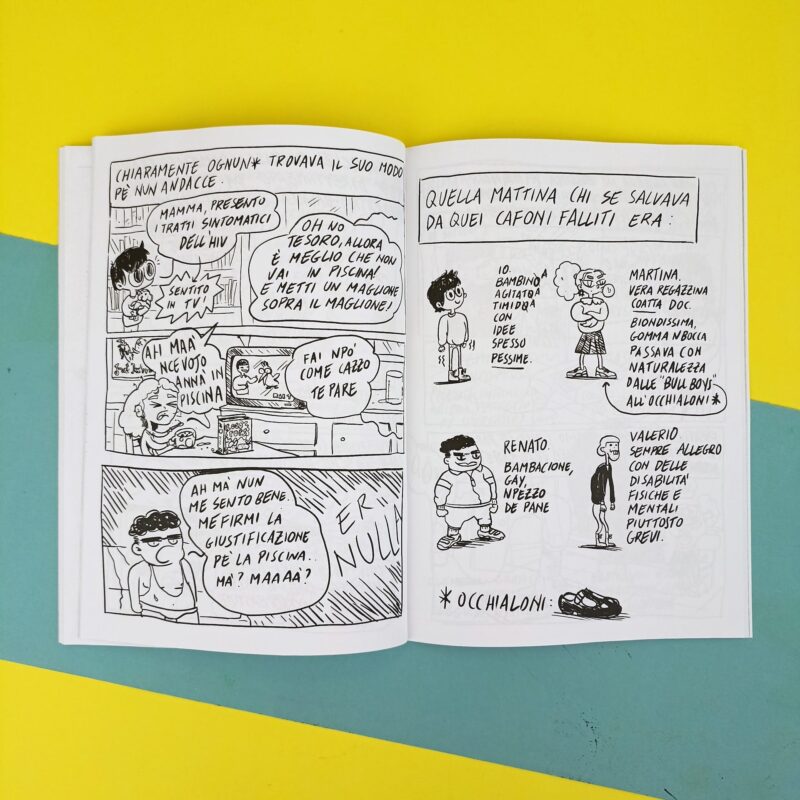 CHIARAMENTE OGNUN* TROVAVA IL SUO MODO
PE' NUN ANDACCE.
MAMMA, PRESENTO
I TRATTI SINTOMATICI
DELL'HIV
SENTITO
IN TV!
OH NO
TESORO, ALLORA
È MEGLIO CHE NON
VAI IN PISCINA!
E METTI UN MAGLIONE
SOPRA IL MAGLIONE!
AH MAA'
NCEVOJO
ANNÀ IN
PISCINA
FAI NPO'
COME CAZZO
TE PARE
AH MA' NUN
ME SENTO BENE.
ME FIRMI LA
GIUSTIFICAZIONE
PE' LA PISCINA..
MA'? MAAAA'?
ER
NULLA
QUELLA MATTINA CHI SE SALVAVA
DA QUEI CAFONI FALLITI ERA:
IO.
BAMBINOA
AGITATOA
TIMIDOA
CON
IDEE
SPESSO
PESSIME.
MARTINA.
VERA REGAZZINA
COATTA DOC.
BIONDISSIMA,
GOMMA N'BOCCA
PASSAVA CON
NATURALEZZA
DALLE "BULL BOYS"
ALL'OCCHIALONI*
RENATO.
BAMBACIONE,
GAY,
NPEZZO
DE PANE
VALERIO
SEMPRE ALLEGRO
CON DELLE
DISABILITA'
FISICHE E
MENTALI
PIUTTOSTO
GREVI.
* OCCHIALONI: